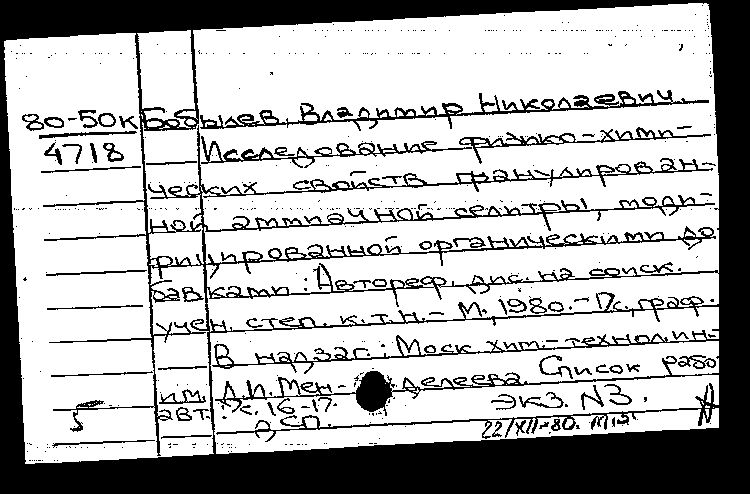 80-50к Бобылев, Владимир Николаевич.
4718 Исследование физико-хими-
ческих свойств гранулирован-
ной аммиачной селитры, моди-
фицированной органическими до
бавками: Автореф. дис. на соиск.
учен. степ. к.т.н. - М., 1980. - с., граф.
В надзаг.: Моск. хим.-технол. ин-
им. Д.И. Мен- делеева. Список работ
авт.: с. 16-17.
5 ДСП. экз. N3.
22/XII-80.